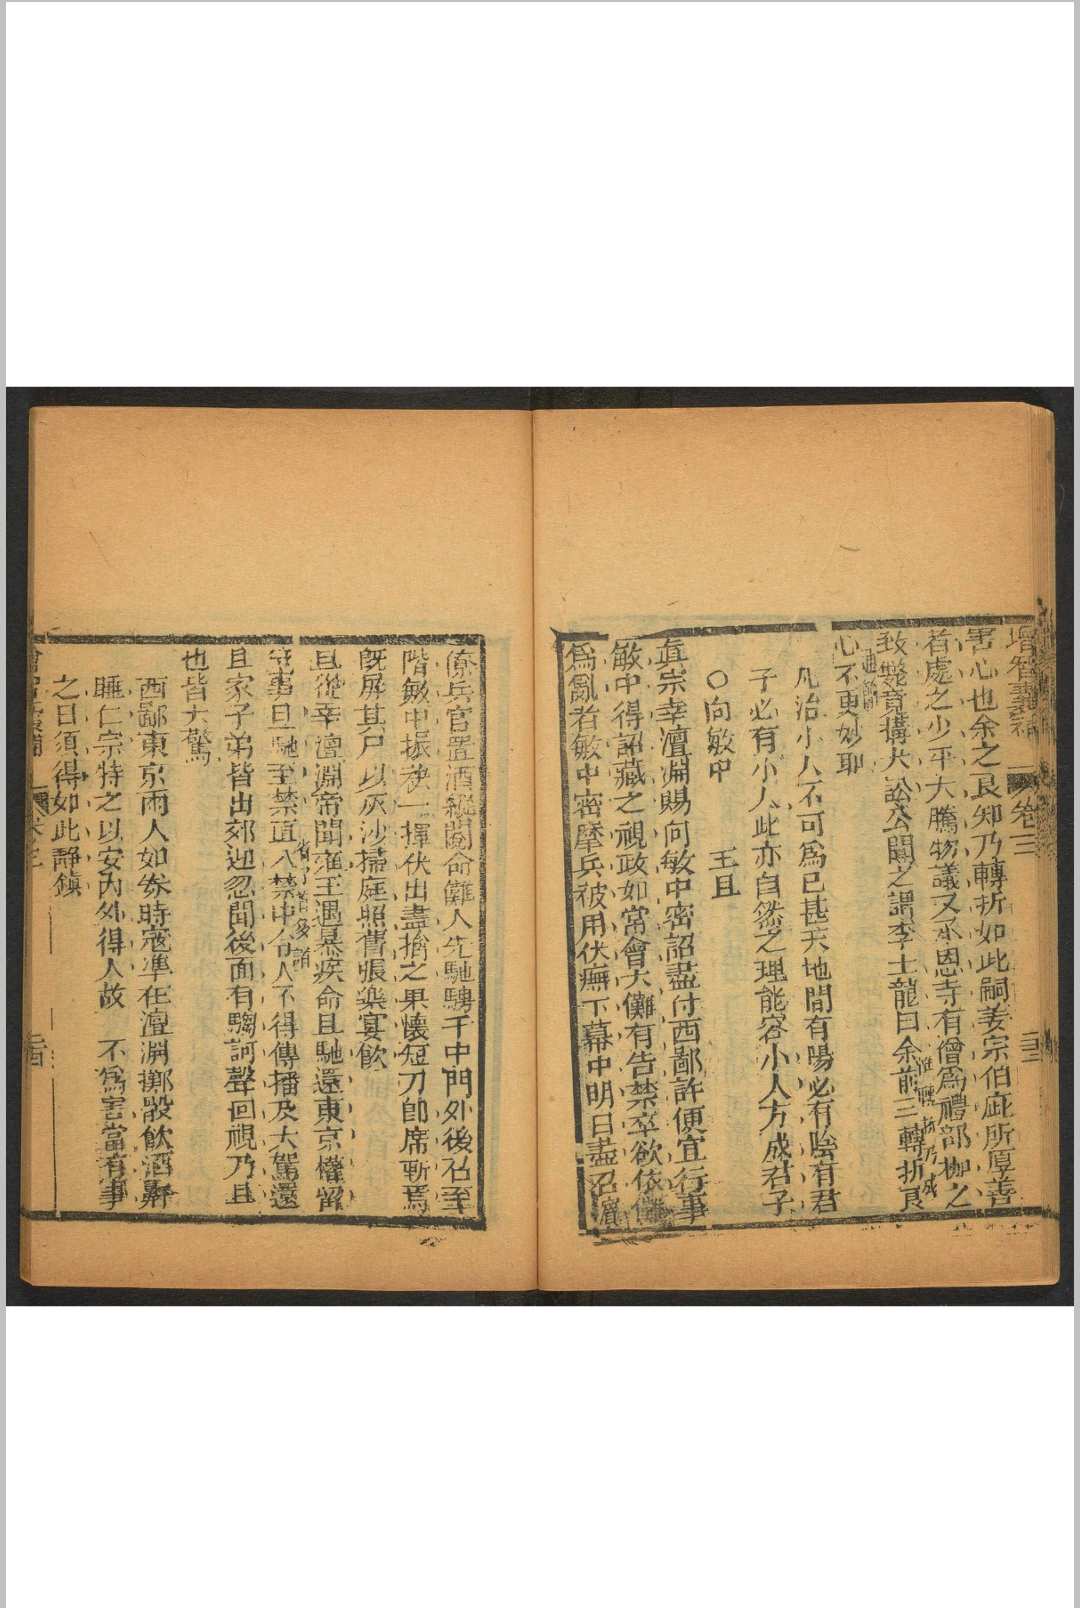 增智囊補 卷三 三三
害心也余之良知乃轉折如此嗣姜宗伯庇所厚善
者處之少平大騰物議又承恩寺有僧爲禮部枷之
致斃竟搆大訟公聞之謂李士龍曰余前三轉折良
心不更妙耶
凡治小人不可爲已甚天地間有陽必有陰有君
子必有小人此亦自然之理能容小人方成君子
○向敏中 王旦
眞宗幸澶淵賜向敏中密詔盡付西鄙許便宜行事
敏中得詔藏之視政如常會大儺有告禁卒欲依儺
爲亂者敏中密麾兵被甲伏廡下幕中明日盡召賓
僚兵官置酒縱閱命儺人先馳騁于中門外後召至
階敏中振袂一揮伏出盡擒之果懷短刀卽席斬焉
旣屏其尸以灰沙掃庭照舊張樂宴飲
旦從幸澶淵帝聞雍王遇暴疾命旦馳還東京權留
守事旦馳至禁直入禁中令人不得傳播及大駕還
旦家子弟皆出郊迎忽聞後面有騶訶聲回視乃旦
也皆大驚
西鄙東京兩人如券時寇準在澶淵擲骰飲酒鼾
睡仁宗特之以安內外得人故 不爲害當有事
之日須得如此靜鎮